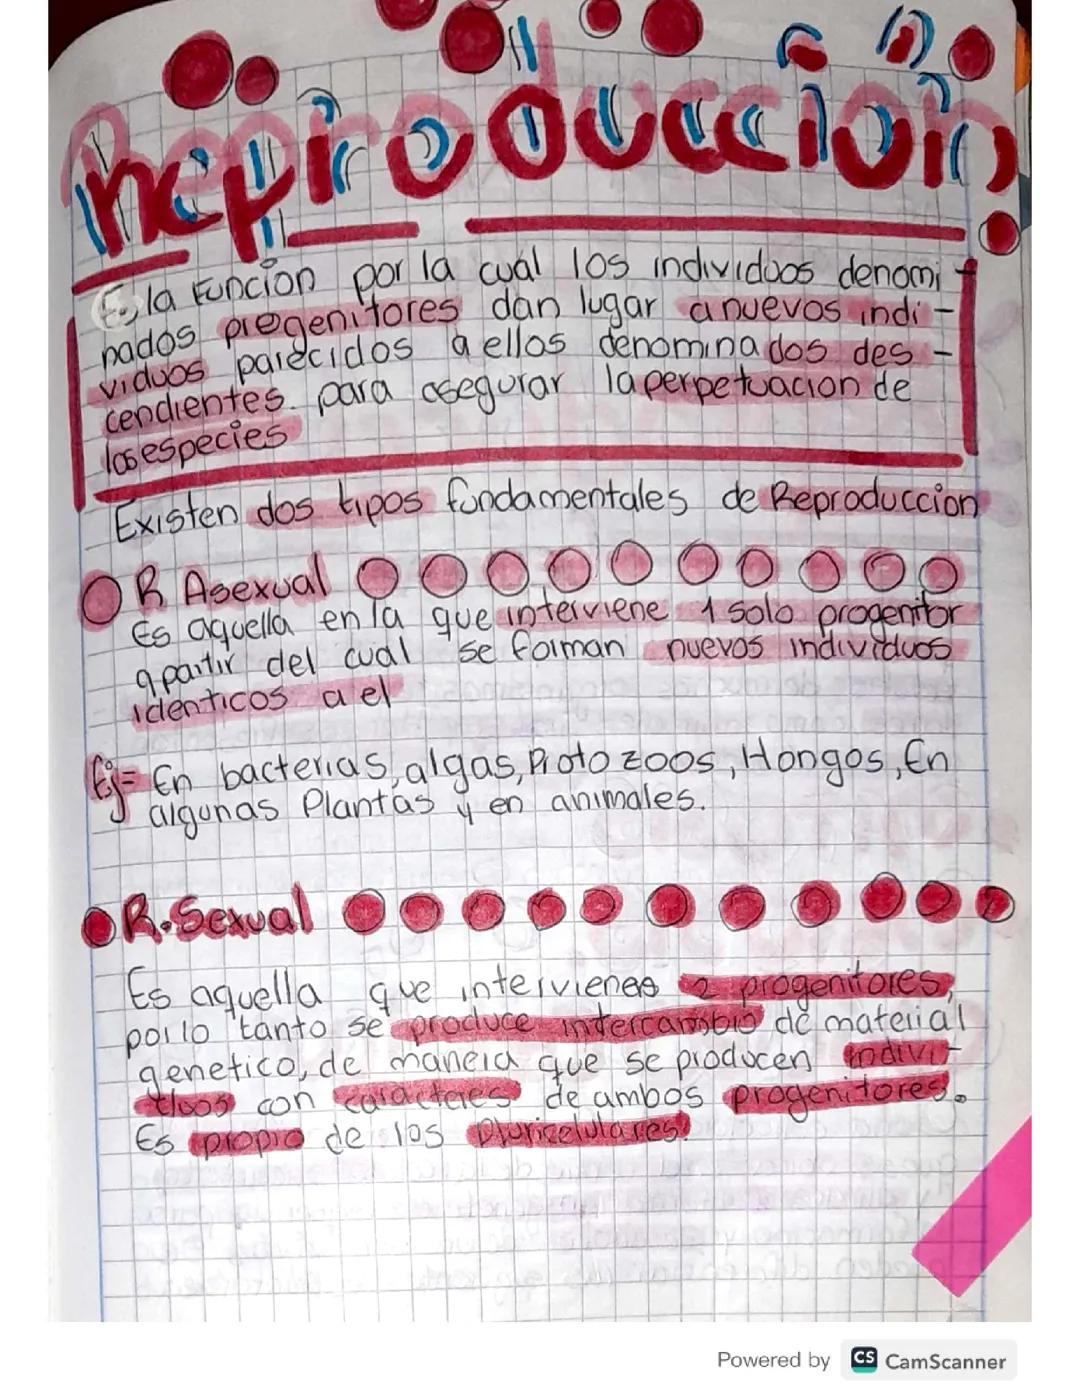 Reproduccion
Es la Funcion por la cual los individuos denomi -
nados progenitores dan lugar a nuevos indi -
viduos parecidos a ellos denominados des -
cendientes para asegurar la perpetuacion de
las especies
Existen dos tipos fundamentales de Reproduccion
R Asexual
Es aquella en la que interviene 1 solo progenitor
apartir del cual se forman nuevos individuos
identicos a el
Ej= En bacterias, algas, Protozoos, Hongos, En
algunas Plantas y en animales.
R. Sexual
Es aquella que intervienes 2 progenitores,
por lo tanto se produce intercambio de material
genetico, de manera que se producen indivi-
duos con caracteres de ambos progenitores.
Es propio de los Pluricelulares.
Powered by CS CamScanner